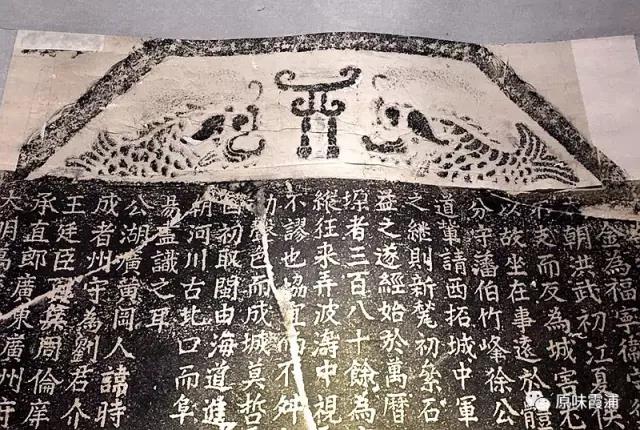 金為福寧德
朝洪武初江夏侯
而反為城害尤
以故坐在事遠於體
分守藩伯竹峰徐公
道 請西拓城中軍
之継則新甃初纍石
益之遂經始於萬曆
者三百八十餘為
縱往來弄波濤中視
不謬也協宜而不舛
色而成城莫哲
初取閩由海道進
河川古北口而阜
易盡識之耳
公湖廣黄岡人諱時
成者州守為劉君介
王廷臣 葉周倫庠
承直郎廣東廣州守
大明
原味霞浦